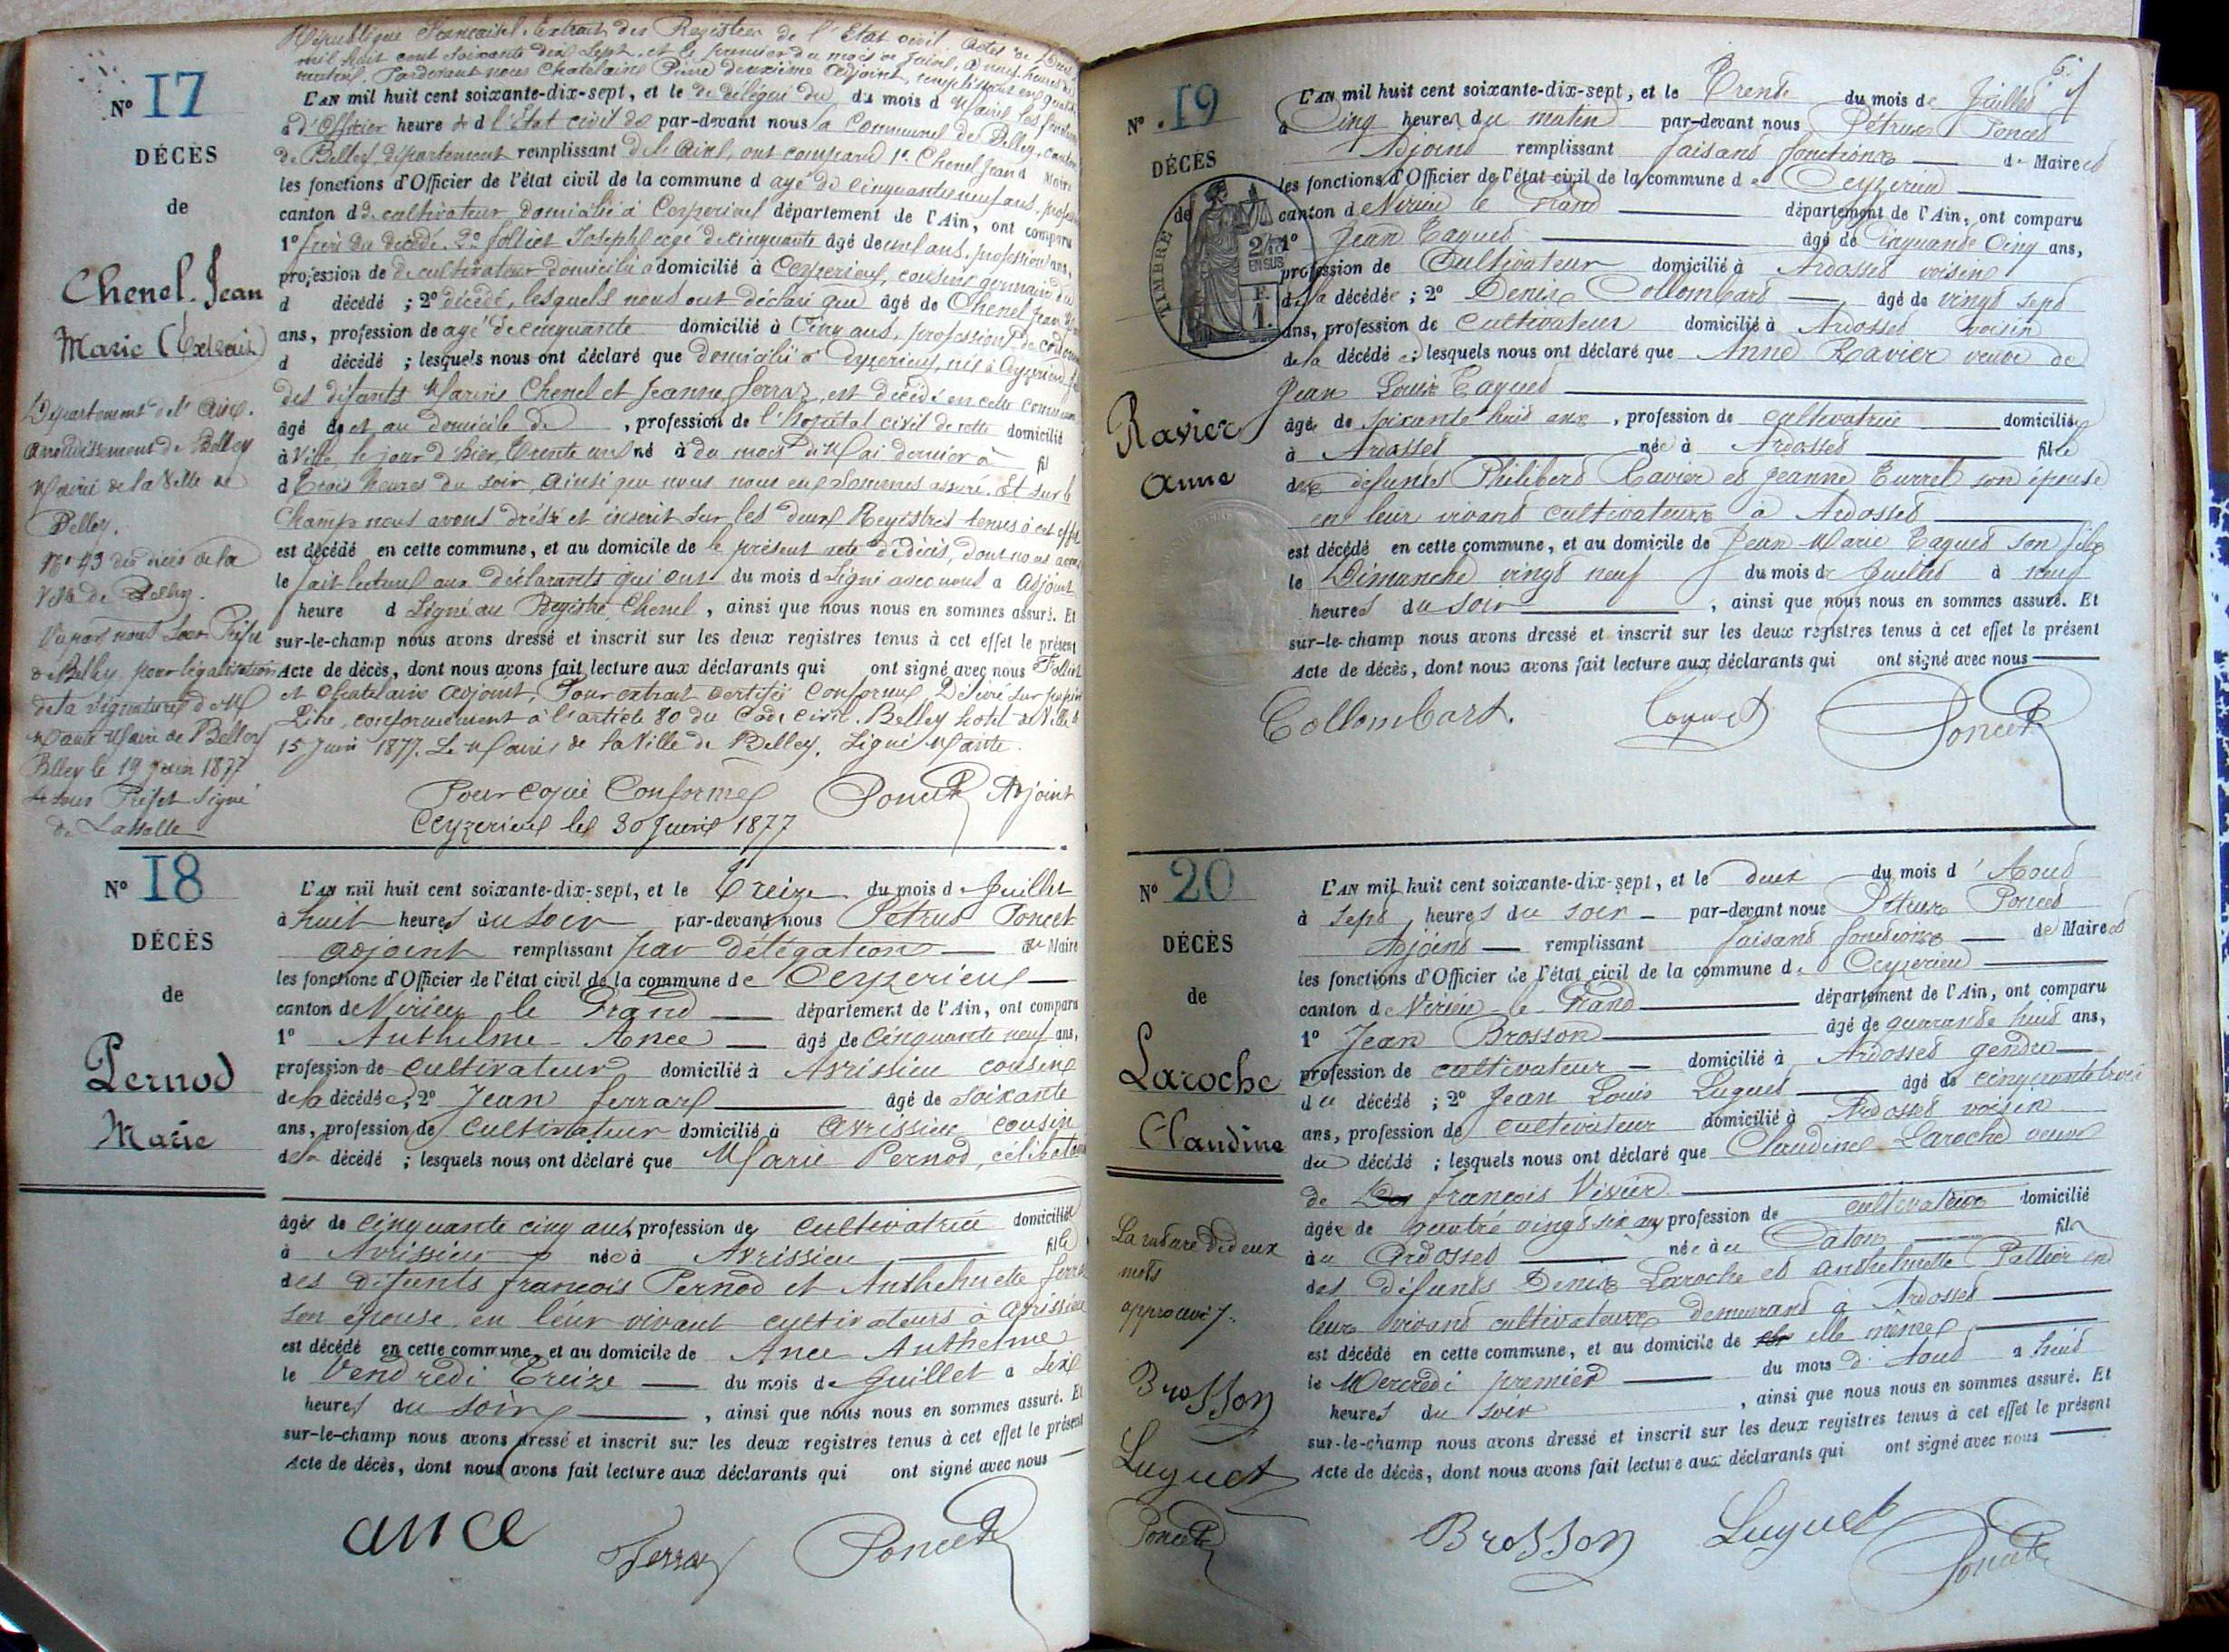 République Française. Extrait des Registres de l'Etat civil Actes de Décès
mil huit cent soixante dix sept, et le premier du mois de Juin, à neuf heures du
matin. Pardevant nous Chatelain Pierre deuxième adjoint, remplissant en qualité
N° 17
L'AN mil huit cent soixante-dix-sept, et le de délégué du du mois d Maire les fonctions
à d'Officier heure de d l'état civil de par-devant nous la Commune de Belley, canton
de Belley, département remplissant de l'Ain, ont comparu 1° Chenel Jean d Maire
les fonctions d'Officier de l'état civil de la commune d agé de cinquante neuf ans, profession
canton d de cultivateur domicilié à Ceyzerieu département de l'Ain, ont comparu
1° frère du décédé. 2° Folliet Joseph agé de cinquante âgé de neuf ans, profession ans,
profession de de cultivateur domicilié à domicilié à Ceyzerieu, cousin germain du
d décédé ; 2° décédé, lesquels nous ont déclaré que âgé de Chenel Jean M
ans, profession de agé de cinquante domicilié à Cinq ans, profession de
d décédé ; lesquels nous ont déclaré que domicilié à Ceyzerieu, né à Ceyzerieu fils
des défunts Marin Chenel et Jeanne Ferraz, est décédé en cette commune
âgé de et au domicile de , profession de l'hopital civil de cette domicilié
à Ville, le jour d'hier, trente un né à du mois de Mai dernier à fil
d trois heures du soir, ainsi que nous nous en sommes assuré. Et sur le
Champ nous avons dréssé et inscrit sur les deux Registres tenus à cet effet
est décédé en cette commune, et au domicile de le présent acte de décès, dont nous avons
le fait lecture aux déclarants qui ont du mois d signé avec nous a adjoint
heure d Signé au Registre, Chenel , ainsi que nous nous en sommes assuré. Et
sur-le-champ nous avons dressé et inscrit sur les deux registres tenus à cet effet le présent
Acte de décès, dont nous avons fait lecture aux déclarants qui ont signé avec nous Folliet
et Chatelain adjoint, Pour extrait certifié conforme, Délivré sur papier
Libre, conformément à l'article 80 du Code civil. Belley hotel de Ville le
15 Juin 1877. Le Maire de la Ville de Belley. Signé Mante.
Pour copie Conforme
Ceyzerieu le 30 Juin 1877
Poncet Adjoint
DÉCÈS
de
Chenel Jean
Marie (Extrait)
Département de l'Ain.
Arrondissement de Belley
Mairie de la Ville de
Belley.
N° 43 des décès de la
Ville de Belley.
Vu par nous Sous Préfet
de Belley, pour légalisation
de la signature de M
Mante Maire de Belley
Belley le 19 Juin 1877
Le Sous Préfet Signé
de Lassalle
N° 18
DÉCÈS
de
Pernod
Marie
L'AN mil huit cent soixante-dix-sept, et le Treize du mois d e Juillet
à huit heures du soir par-devant nous Pétrus Poncet
adjoint remplissant par délégation du Maire
les fonctions d'Officier de l'état civil de la commune de Ceyzerieu
canton de Virieu le Grand département de l'Ain, ont comparu
1° Anthelme Ance âgé de cinquante neuf ans,
profession de cultivateur domicilié à Avrissieu cousin
de la décédée; 2° Jean Ferraz âgé de soixante
ans, profession de cultivateur domicilié à Avrissieu cousin
de la décédé ; lesquels nous ont déclaré que Marie Pernod, célibataire
âgée de cinquante cinq ans, profession de cultivatrice domiciliée
à Avrissieu née à Avrissieu fille
des défunts François Pernod et Anthelmette Ferraz
son épouse en leur vivant cultivateurs à Avrissieu
est décédé en cette commune, et au domicile de Ance Anthelme
le Vendredi Treize du mois de Juillet à six
heures du soir , ainsi que nous nous en sommes assuré. Et
sur-le-champ nous avons dressé et inscrit sur les deux registres tenus à cet effet le présent
Acte de décès, dont nous avons fait lecture aux déclarants qui ont signé avec nous
ance Ferraz Poncet
N° 19
DÉCÈS
de
Ravier
Anne
TIMBRE
2/10 EN SUS
F. 1.
L'AN mil huit cent soixante-dix-sept, et le Trente du mois de Juillet
à Cinq heures du matin par-devant nous Pétrus Poncet
Adjoint remplissant faisant fonctions de Maire et
les fonctions d'Officier de l'état civil de la commune d e Ceyzerieu
canton de Virieu le Grand département de l'Ain, ont comparu
1° Jean Taquet âgé de Cinquante Cinq ans,
profession de Cultivateur domicilié à Ardosset voisin
de la décédée ; 2° Denis Collombart âgé de vingt sept
ans, profession de cultivateur domicilié à Ardosset voisin
de la décédée ; lesquels nous ont déclaré que Anne Ravier veuve de
Jean Louis Taquet
âgée de soixante huit ans , profession de cultivatrice domiciliée
à Ardosset née à Ardosset fille
des défunts Philibert Ravier et Jeanne Turrel son épouse
en leur vivant cultivateurs à Ardosset
est décédé en cette commune, et au domicile de Jean-Marie Taquet son fils
le Dimanche vingt neuf du mois de Juillet à neuf
heures du soir , ainsi que nous nous en sommes assuré. Et
sur-le-champ nous avons dressé et inscrit sur les deux registres tenus à cet effet le présent
Acte de décès, dont nous avons fait lecture aux déclarants qui ont signé avec nous
Collombart. Poncet
N° 20
DÉCÈS
de
Laroche
Claudine
La rature de deux
mots
approuvé
Brosson
Luguet
Poncet
L'AN mil huit cent soixante-dix-sept, et le deux du mois d' Août
à sept heures du soir par-devant nous Pétrus Poncet
Adjoint remplissant faisant fonctions de Maire et
les fonctions d'Officier de l'état civil de la commune de Ceyzerieu
canton de Virieu le Grand département de l'Ain, ont comparu
1° Jean Brosson âgé de quarante huit ans,
profession de cultivateur domicilié à Ardosset gendre
du décédé ; 2° Jean Louis Luguet âgé de cinquante trois
ans, profession de cultivateur domicilié à Ardosset voisin
du décédé ; lesquels nous ont déclaré que Claudine Laroche veuve
de François Vivier
âgée de quatre vingt six ans profession de cultivateur domicilié
à u Ardosset née à u Caton fille
des défunts Denis Laroche et Anthelmette Pallier en
leur vivant cultivateurs demeurant à Ardosset
est décédé en cette commune, et au domicile de elle même
le Mercredi premier du mois d'Août à huit
heures du soir , ainsi que nous nous en sommes assuré. Et
sur-le-champ nous avons dressé et inscrit sur les deux registres tenus à cet effet le présent
Acte de décès, dont nous avons fait lecture aux déclarants qui ont signé avec nous
Brosson Luguet Poncet